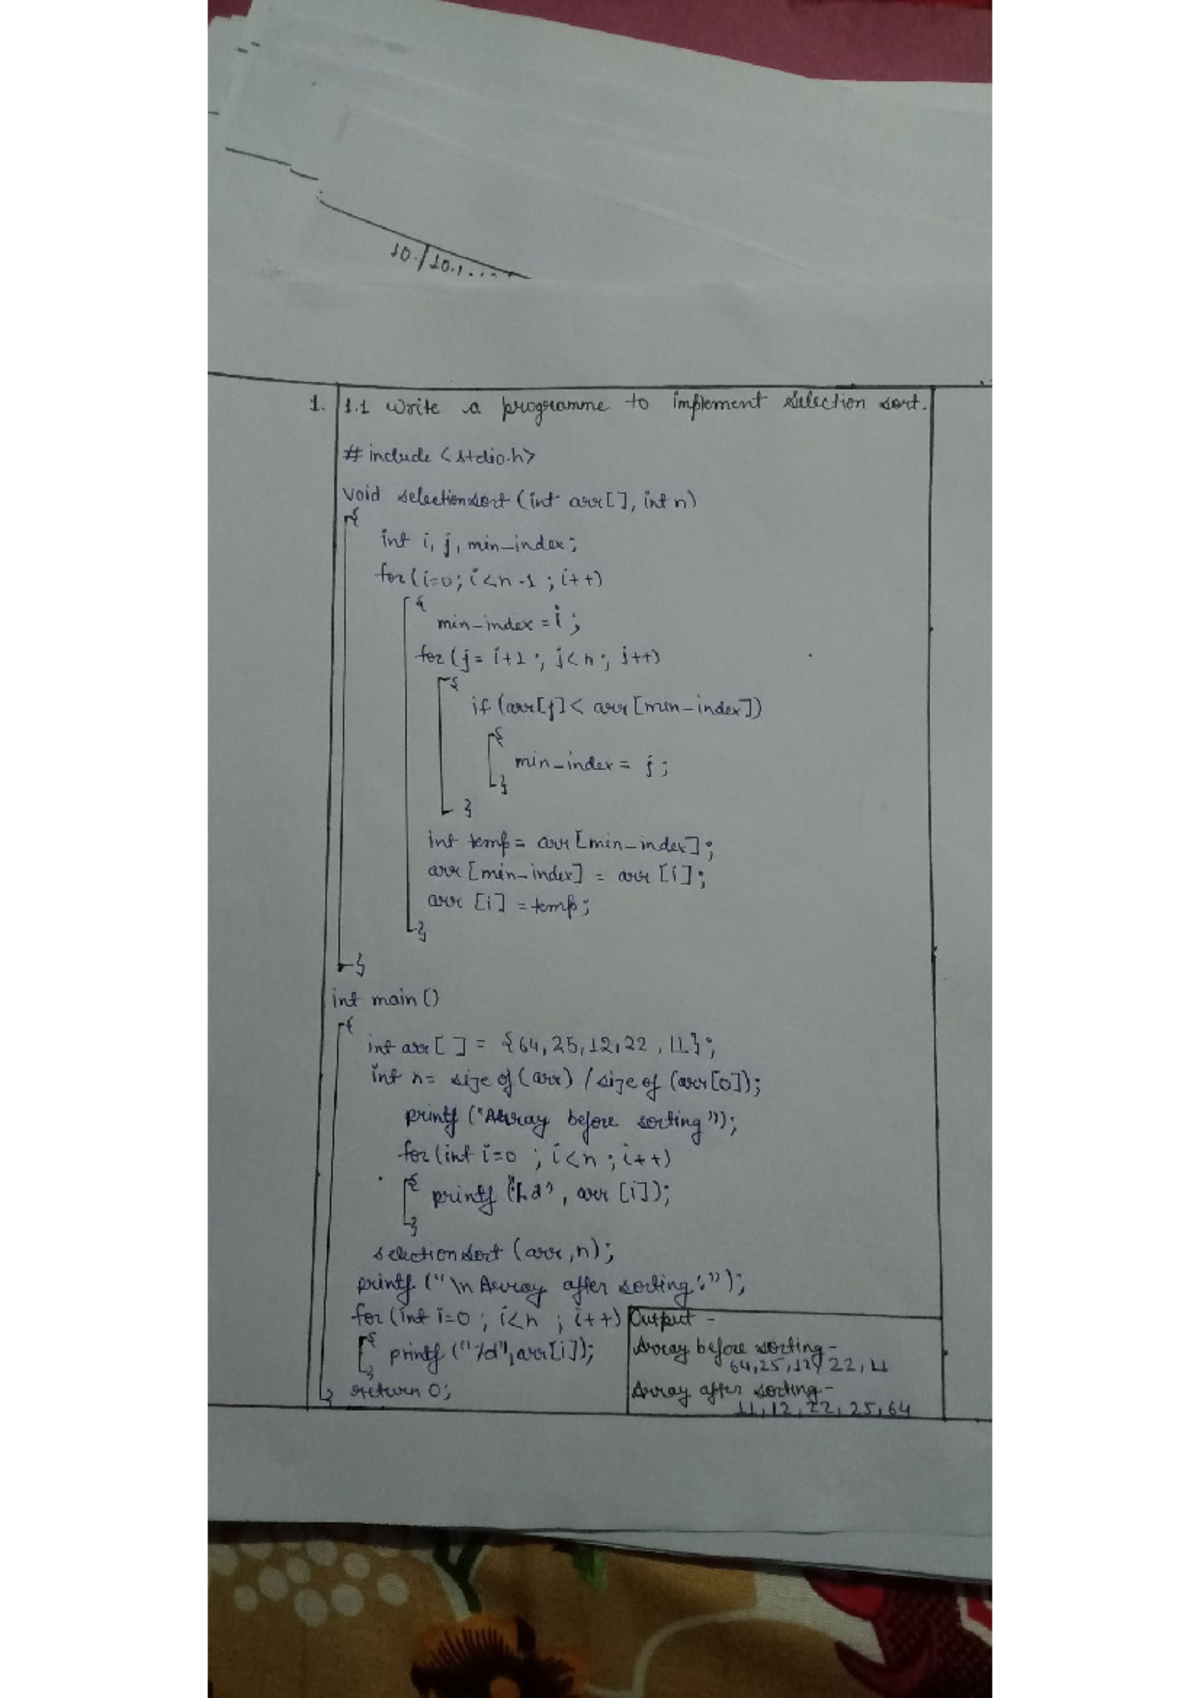 10./10.1....
1. 1.1 Write a programme to implement selection sort.
# include <stdio.h>
void selectionsort (int arr[], int n)
{
int i, j, min_index;
for (i=0; i<n-1 ; i++)
{
min_index = i ;
for (j= i+1 ; j<n ; j++)
{
if (arr[j] < arr [min_index])
{
min_index = j ;
}
}
int temp = arr [min_index];
arr [min_index] = arr [i];
arr [i] = temp;
}
}
int main ()
{
int arr[ ] = {64, 25, 12, 22 , 11};
int n= size of (arr) / size of (arr[0]);
printf ("Array before sorting");
for (int i=0 ; i<n ; i++)
{ printf ("%d", arr [i]);
}
selectionsort (arr, n);
printf ("\n Array after sorting:");
for (int i=0 ; i<n ; i++)
{ printf ("%d", arr[i]);
}
return 0;
}
Output -
Array before sorting -
64, 25, 12, 22, 11
Array after sorting -
11, 12, 22, 25, 64